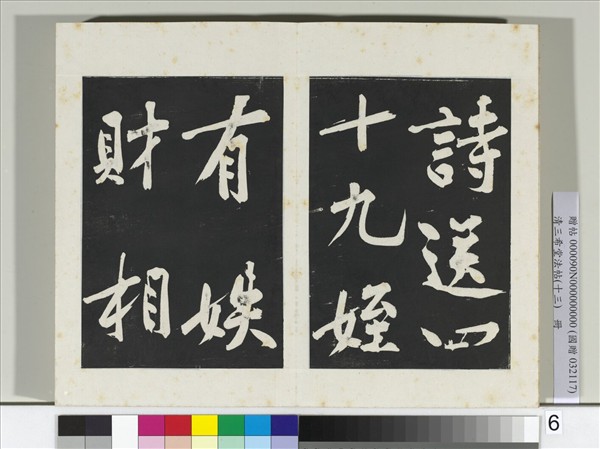 詩送四
十九姪
有娱
財相
贈帖 000090N000000000 (國贈 032117)
清三希堂法帖(十三) 冊
6